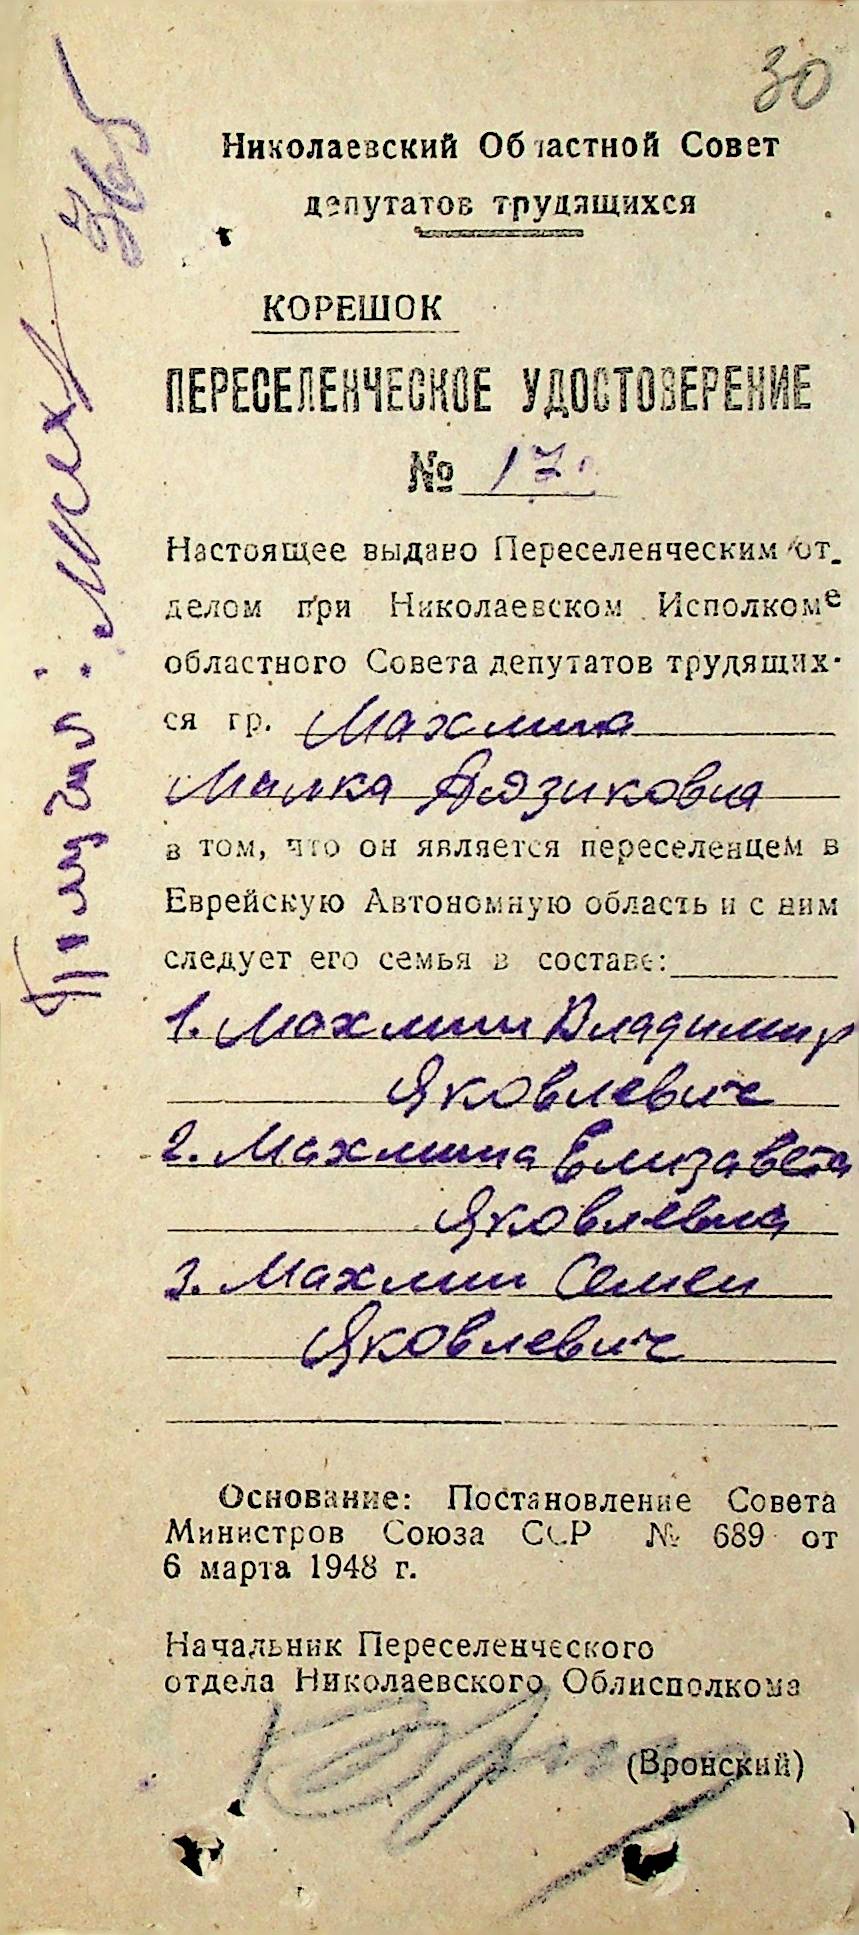 30
Николаевский Областной Совет
депутатов трудящихся
КОРЕШОК
ПЕРЕСЕЛЕНЧЕСКОЕ УДОСТОВЕРЕНИЕ
№ 17
Настоящее выдано Переселенческим от-
делом при Николаевском Исполкоме
областного Совета депутатов трудящих-
ся гр. Махлина
Малка
в том, что он является переселенцем в
Еврейскую Автономную область и с ним
следует его семья в составе:
1. Махлин Владимир
Яковлевич
2. Махлина Елизавета
Яковлевна
3. Махлин Семен
Яковлевич
Основание: Постановление Совета
Министров Союза ССР № 689 от
6 марта 1948 г.
Начальник Переселенческого
отдела Николаевского Облисполкома
(Вронский)
Получил: